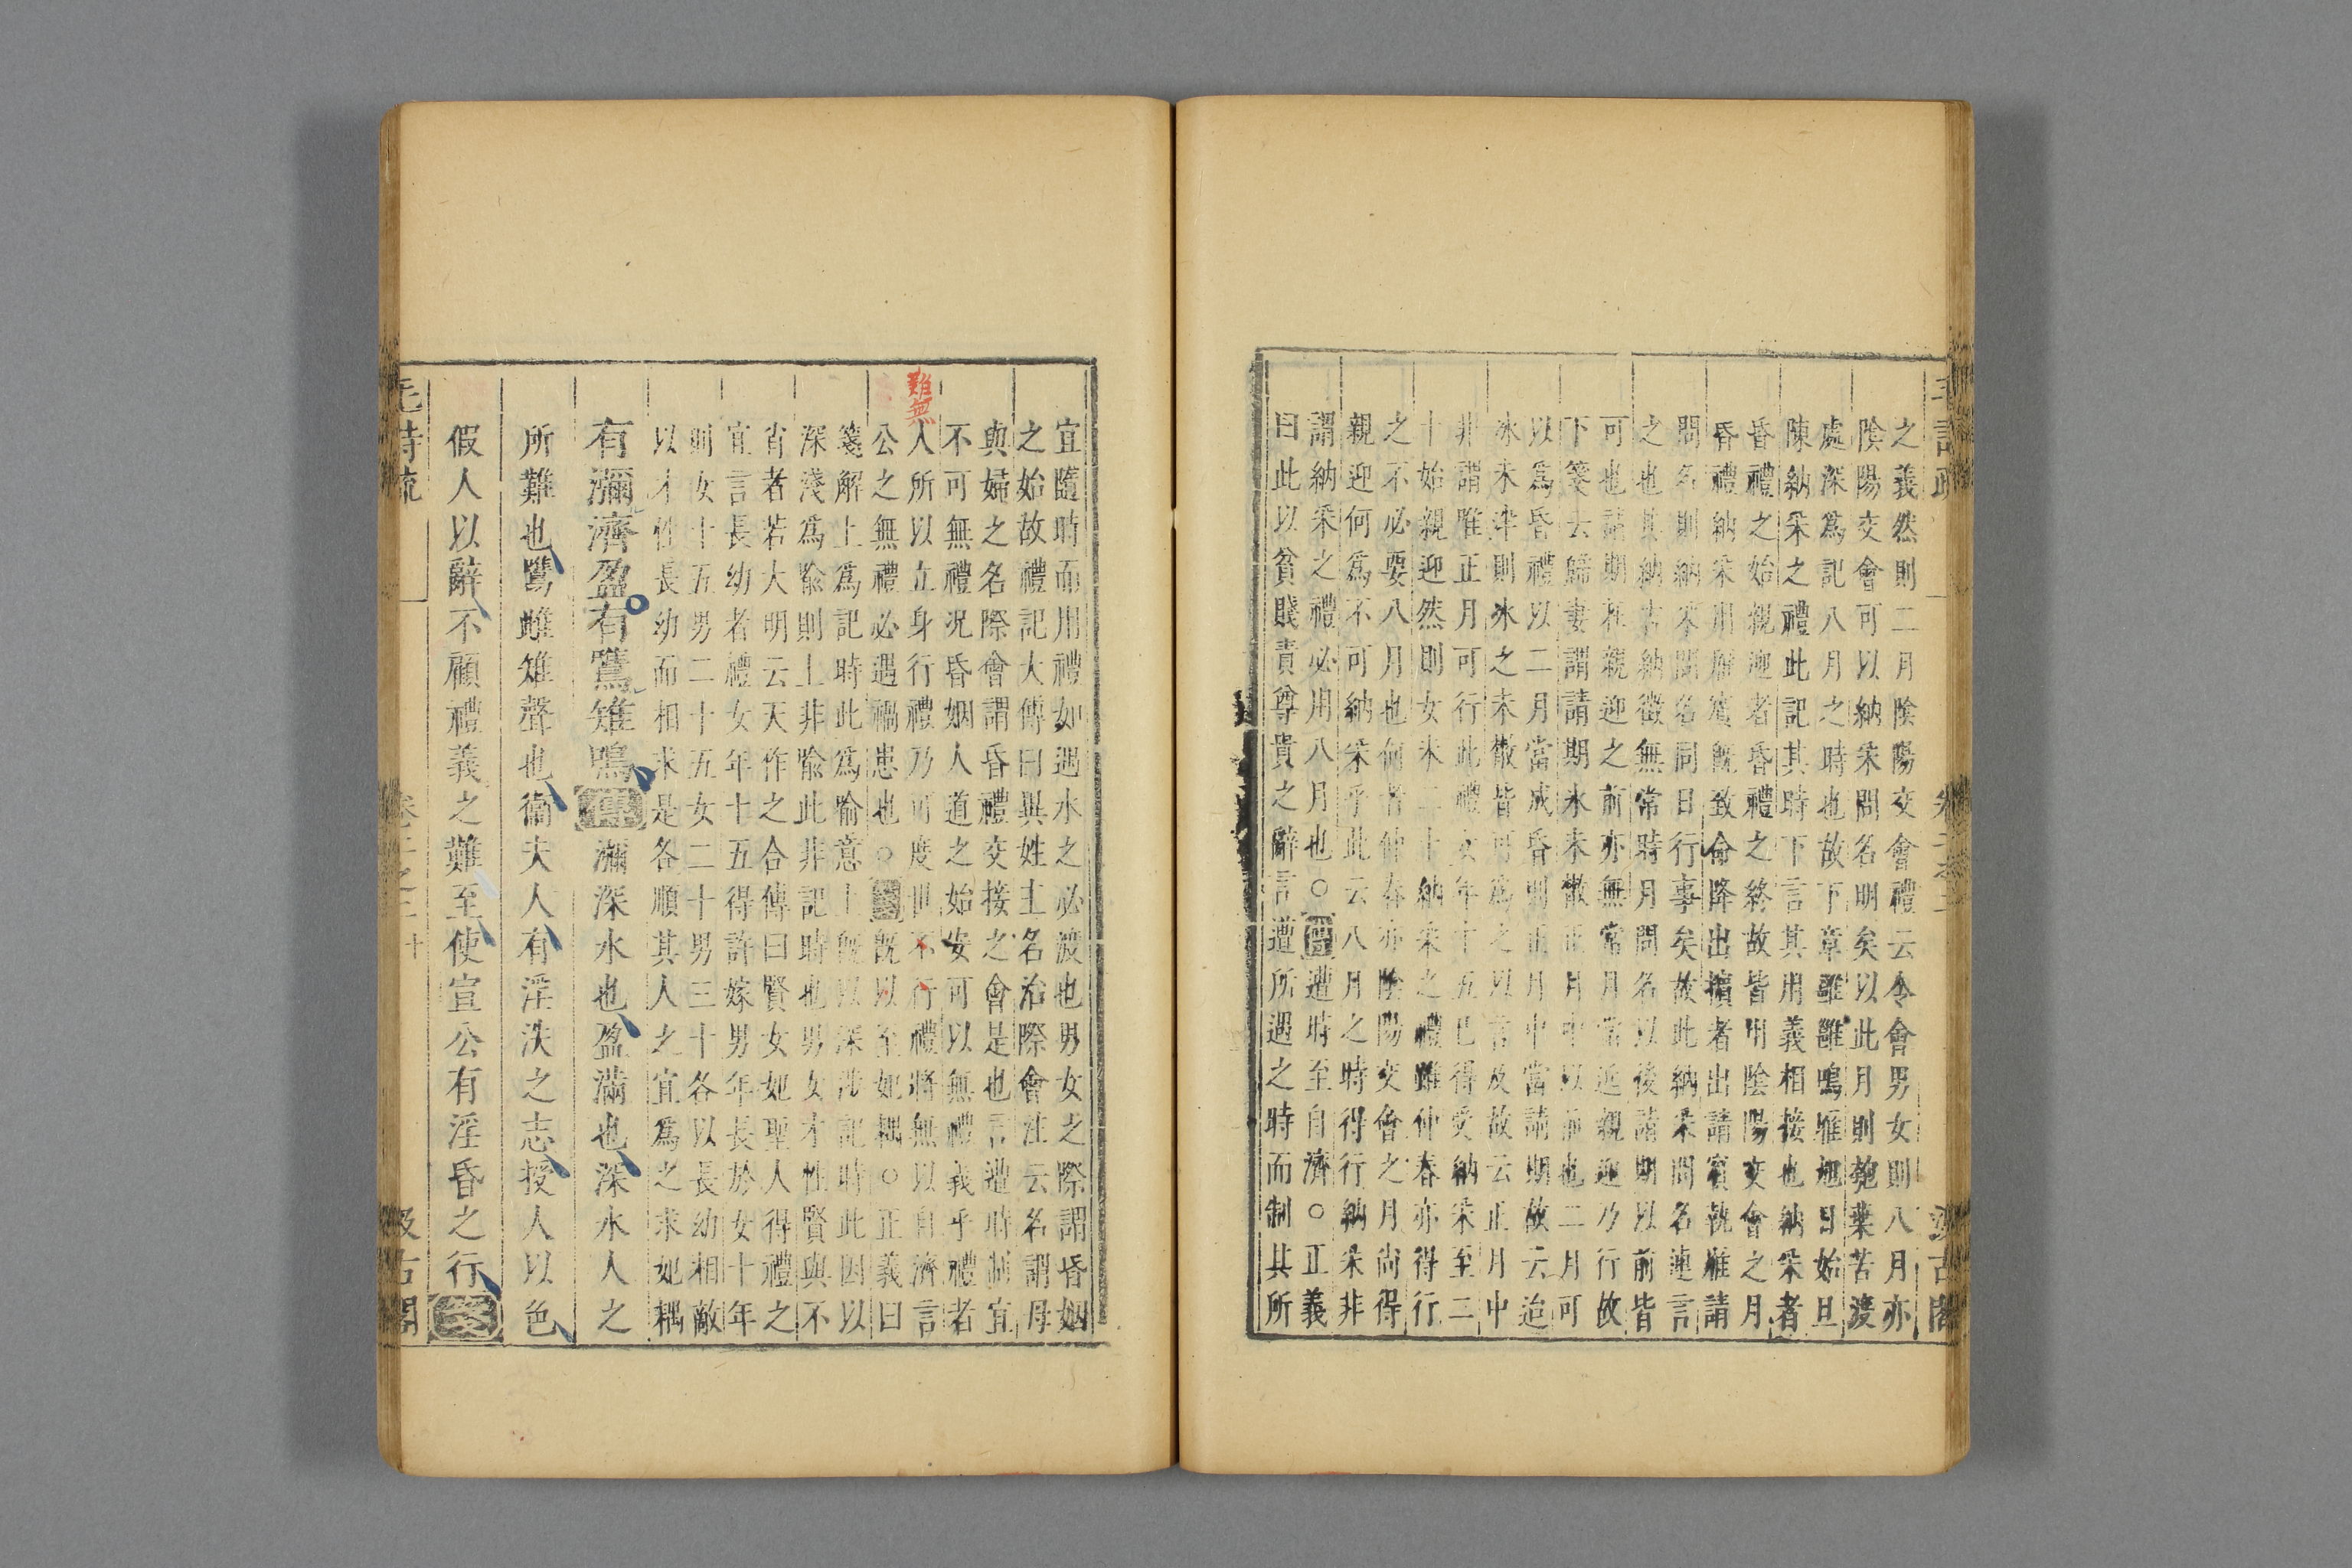 之義然則二月陰陽交會禮云令會男女則八月亦
陰陽交會可以納采問名明矣以此月則匏葉苦渡
處深爲記八月之時也故下章雝雝鳴雁旭日始旦
陳納采之禮此記其時下言其用義相接也納采者
昏禮之始親迎者昏禮之終故皆用陰陽交會之月
昏禮納采用鴈賓既致命降出擯者出請賓執雁請
問名則納采問名同日行事矣故此納采問名連言
之也其納吉納徵無常時月問名以後請期以前皆
可也請期在親迎之前亦無常月當近親迎乃行故
下箋云歸妻謂請期冰未散正月中以前也二月可
以爲昏禮以二月當成昏則正月中當請期故云迨
冰未泮則冰之未散皆可爲之以言及故云正月中
非謂唯正月可行此禮女年十五已得受納采至二
十始親迎然則女未二十納采之禮雖仲春亦得行
之不必要八月也何者仲春亦陰陽交會之月尚得
親迎何爲不可納采乎此云八月之時得行納采非
謂納采之禮必用八月也○傳遭時至自濟○正義
曰此以貧賤責尊貴之辭言遭所遇之時而制其所
宜隨時而用禮如遇水之必渡也男女之際謂昏姻
之始故禮記大傳曰異姓主名治際會注云名謂母
與婦之名際會謂昏禮交接之會是也言遭時制宜
不可無禮况昏姻人道之始安可以無禮義乎禮者
人所以立身行禮乃可度世不行禮將無以自濟言
公之無禮必遇禍患也○箋既以至妃耦○正義曰
箋解上爲記時此爲喻意上既以深涉記時此因以
深淺爲喻則上非喻此非記時也男女才性賢與不
肖者若大明云天作之合傳曰賢女妃聖人得禮之
宜言長幼者禮女年十五得許嫁男年長於女十年
則女十五男二十五女二十男三十各以長幼相敵
以才性長幼而相求是各順其人之宜爲之求妃耦
有瀰濟盈有鷕雉鳴傳瀰深水也盈滿也深水人之
所難也鷕雌雉聲也衞夫人有淫泆之志授人以色
假人以辭不顧禮義之難至使宣公有淫昏之行箋
毛詩疏 卷二之二 十 汲古閣
難無